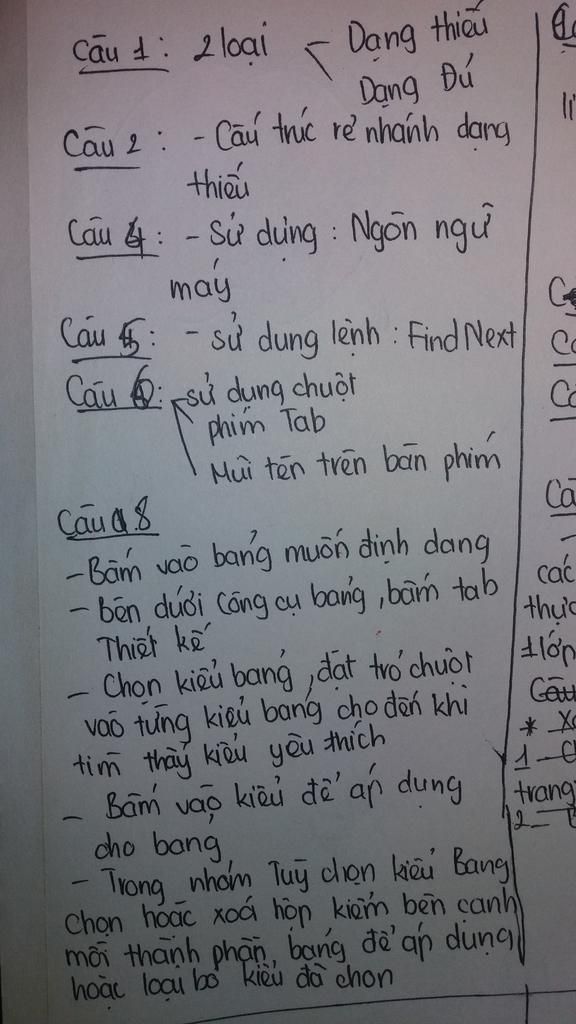 Câu 1: 2 loại - Dạng thiếu
Dạng Đủ
Câu 2: - Cấu trúc rẽ nhánh dạng
thiếu
Câu 4: - Sử dụng: Ngôn ngữ
máy
Câu 5: - sử dung lệnh: Find Next
Câu 6: sử dung chuột
phím Tab
Mũi tên trên bàn phím
Câu 8
- Bấm vào bảng muốn định dang
- bên dưới Công cụ bảng, bấm tab
Thiết kế
- Chọn kiểu bảng, đặt trỏ chuột
vào từng kiểu bảng cho đến khi
tìm thấy kiểu yêu thích
- Bấm vào kiểu để áp dụng
cho bang
- Trong nhóm Tuỳ chọn kiểu Bang
Chọn hoăc xoá hôp kiểm bên canh
mỗi thành phần bảng để áp dụng
hoặc loại bỏ kiểu đã chon
các
thực
1 lớp
Câu
*
1 - C
trang
2 -